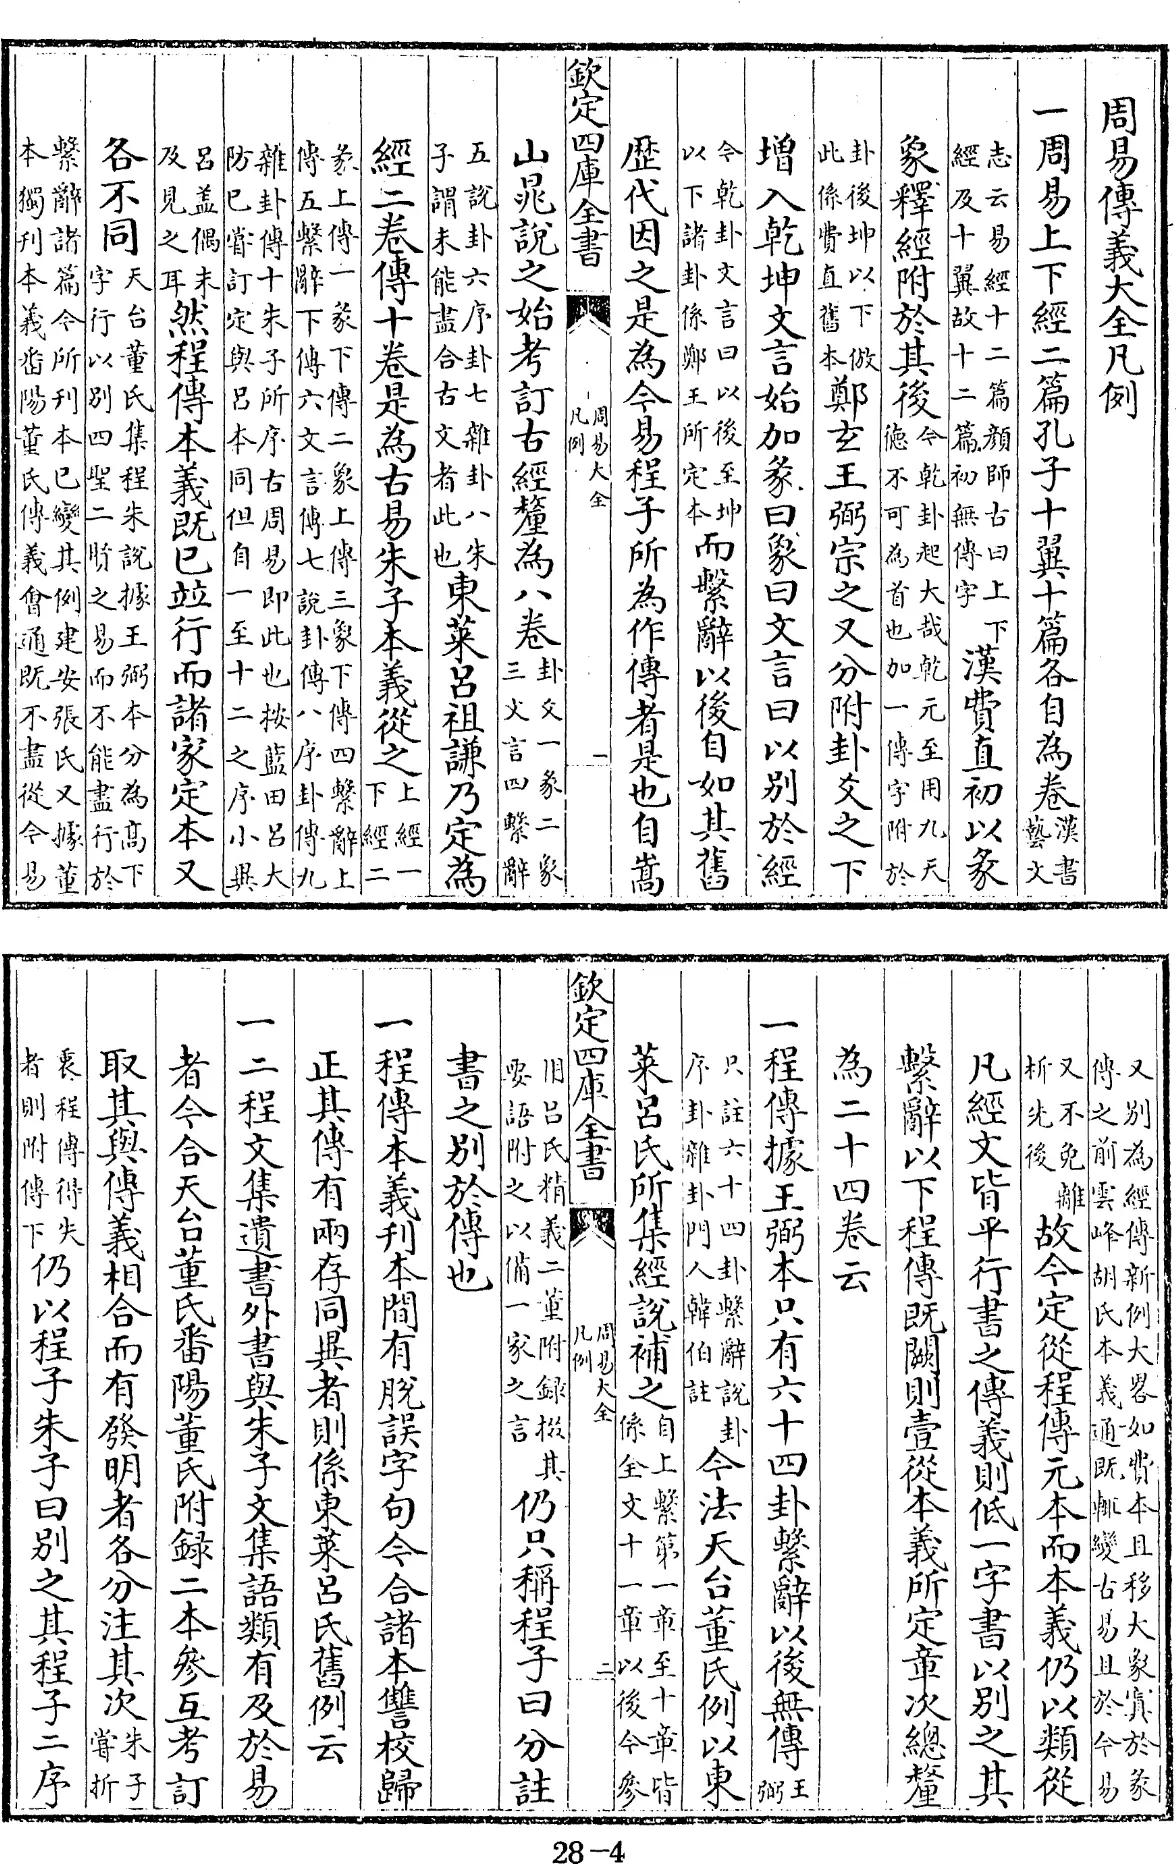 周易傳義大全凡例
一周易上下經二篇孔子十翼十篇各自為卷漢書藝文
志云易經十二篇顔師古曰上下經及十翼故十二篇初無傳字漢費直初以彖
象釋經附於其後今乾卦起大哉乾元至用九天德不可為首也加一傳字附於
卦後坤以下倣此係費直舊本鄭玄王弼宗之又分附卦爻之下
增入乾坤文言始加彖曰象曰文言曰以別於經
今乾卦文言曰以後至坤以下諸卦係鄭王所定本而繫辭以後自如其舊
歴代因之是為今易程子所為作傳者是也自嵩
欽定四庫全書 周易大全凡例 一
山晁說之始考訂古經釐為八卷卦爻一彖二象三文言四繫辭
五說卦六序卦七雜卦八朱子謂未能盡合古文者此也東萊呂祖謙乃定為
經二卷傳十卷是為古易朱子本義從之上經一下經二
彖上傳一彖下傳二象上傳三象下傳四繫辭上傳五繫辭下傳六文言傳七說卦傳八序卦傳九
雜卦傳十朱子所序古周易即此也按藍田呂大防已嘗訂定與呂本同但自一至十二之序小異
呂盖偶未及見之耳然程傳本義既已並行而諸家定本又
各不同天台董氏集程朱說據王弼本分為高下字行以別四聖二賢之易而不能盡行於
繫辭諸篇今所刊本已變其例建安張氏又據董本獨刊本義畨陽董氏傳義會通既不盡從今易
又別為經傳新例大畧如費本且移大象置於彖傳之前雲峰胡氏本義通既輒變古易且於今易
又不免離析先後故今定從程傳元本而本義仍以類從
凡經文皆平行書之傳義則低一字書以別之其
繫辭以下程傳既闕則壹從本義所定章次總釐
為二十四卷云
一程傳據王弼本只有六十四卦繫辭以後無傳王弼
只註六十四卦繫辭說卦序卦雜卦門人韓伯註今法天台董氏例以東
萊呂氏所集經說補之自上繫第一章至十章皆係全文十一章以後今參
用呂氏精義二董附録掇其要語附之以備一家之言仍只稱程子曰分註
欽定四庫全書 周易大全凡例 二
書之別於傳也
一程傳本義刊本間有脫誤字句今合諸本讐校歸
正其傳有兩存同異者則係東萊呂氏舊例云
一二程文集遺書外書與朱子文集語類有及於易
者今合天台董氏番陽董氏附録二本參互考訂
取其與傳義相合而有發明者各分注其次朱子嘗折
衷程傳得失者則附傳下仍以程子朱子曰別之其程子二序
28-4